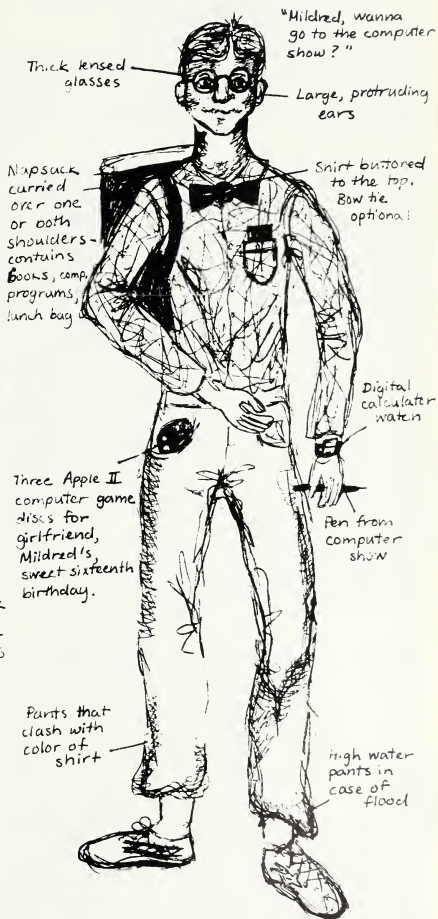 "Mildred, wanna
go to the computer
show?"
Thick lensed
glasses
Large, protruding
ears
Napsack
carried
over one
or both
shoulders-
contains
Books, comp.
programs,
lunch bag
Shirt buttoned
to the top.
Bow tie
optional
Digital
calculater
watch
Three Apple II
computer game
discs for
girlfriend,
Mildred's,
sweet sixteenth
birthday.
Pen from
computer
show
Pants that
clash with
color of
shirt
High water
pants in
case of
flood